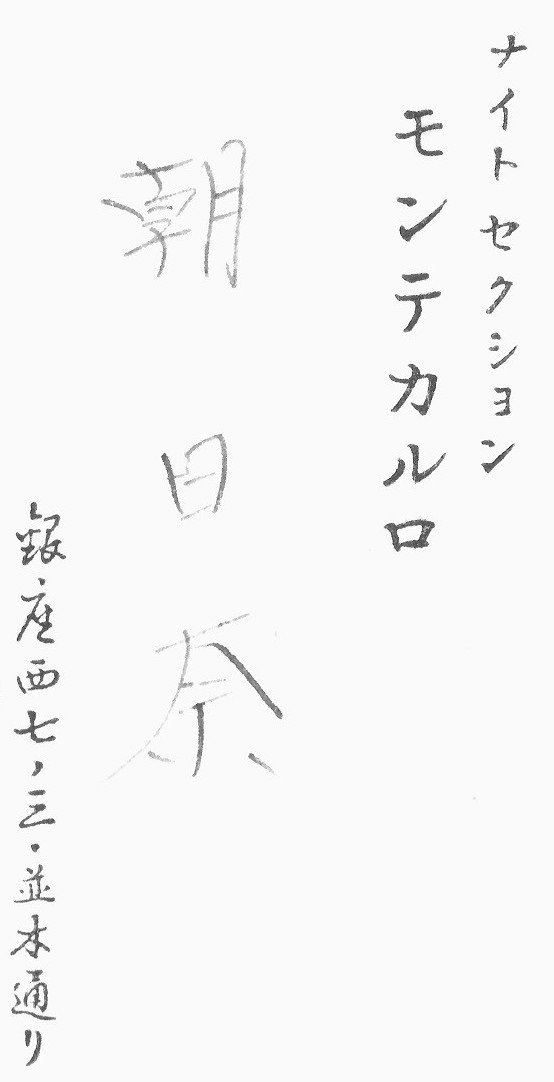 ナイトセクション
モンテカルロ
朝日奈
銀座西七ノ三・並木通り